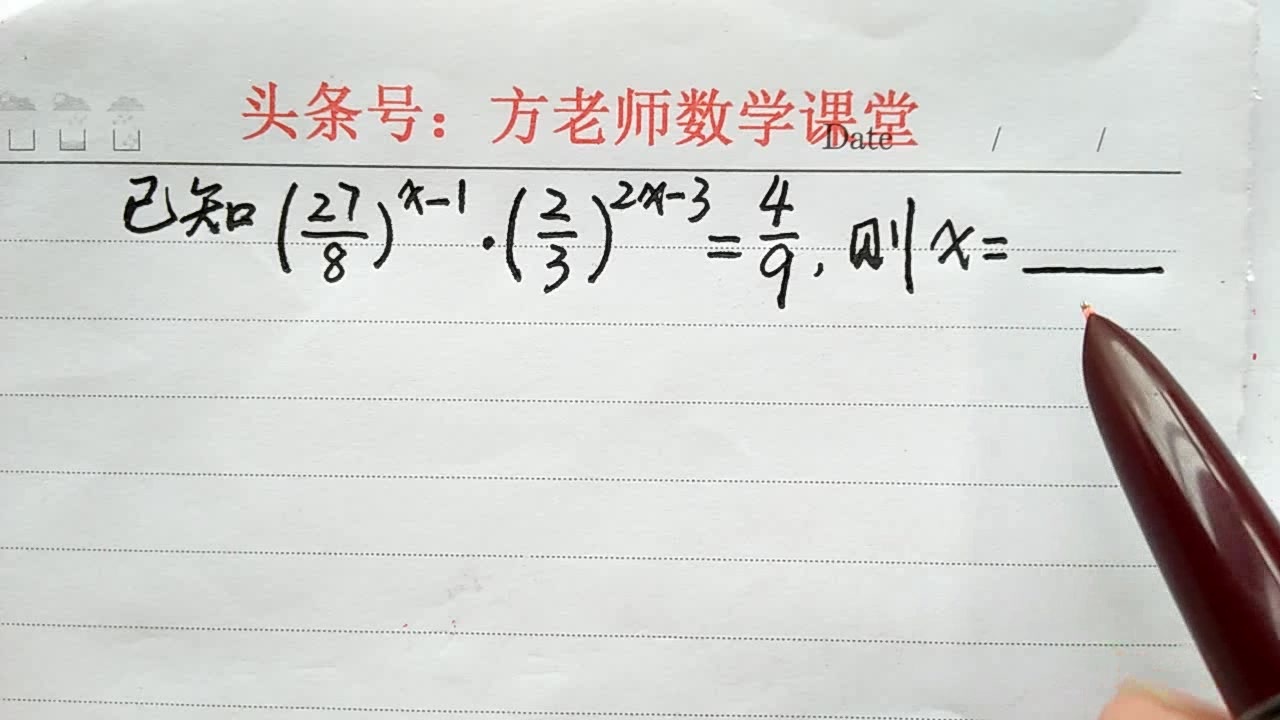 头条号：方老师数学课堂
Date / /
已知(27/8)^(x-1)·(2/3)^(2x-3)=4/9，则x=____